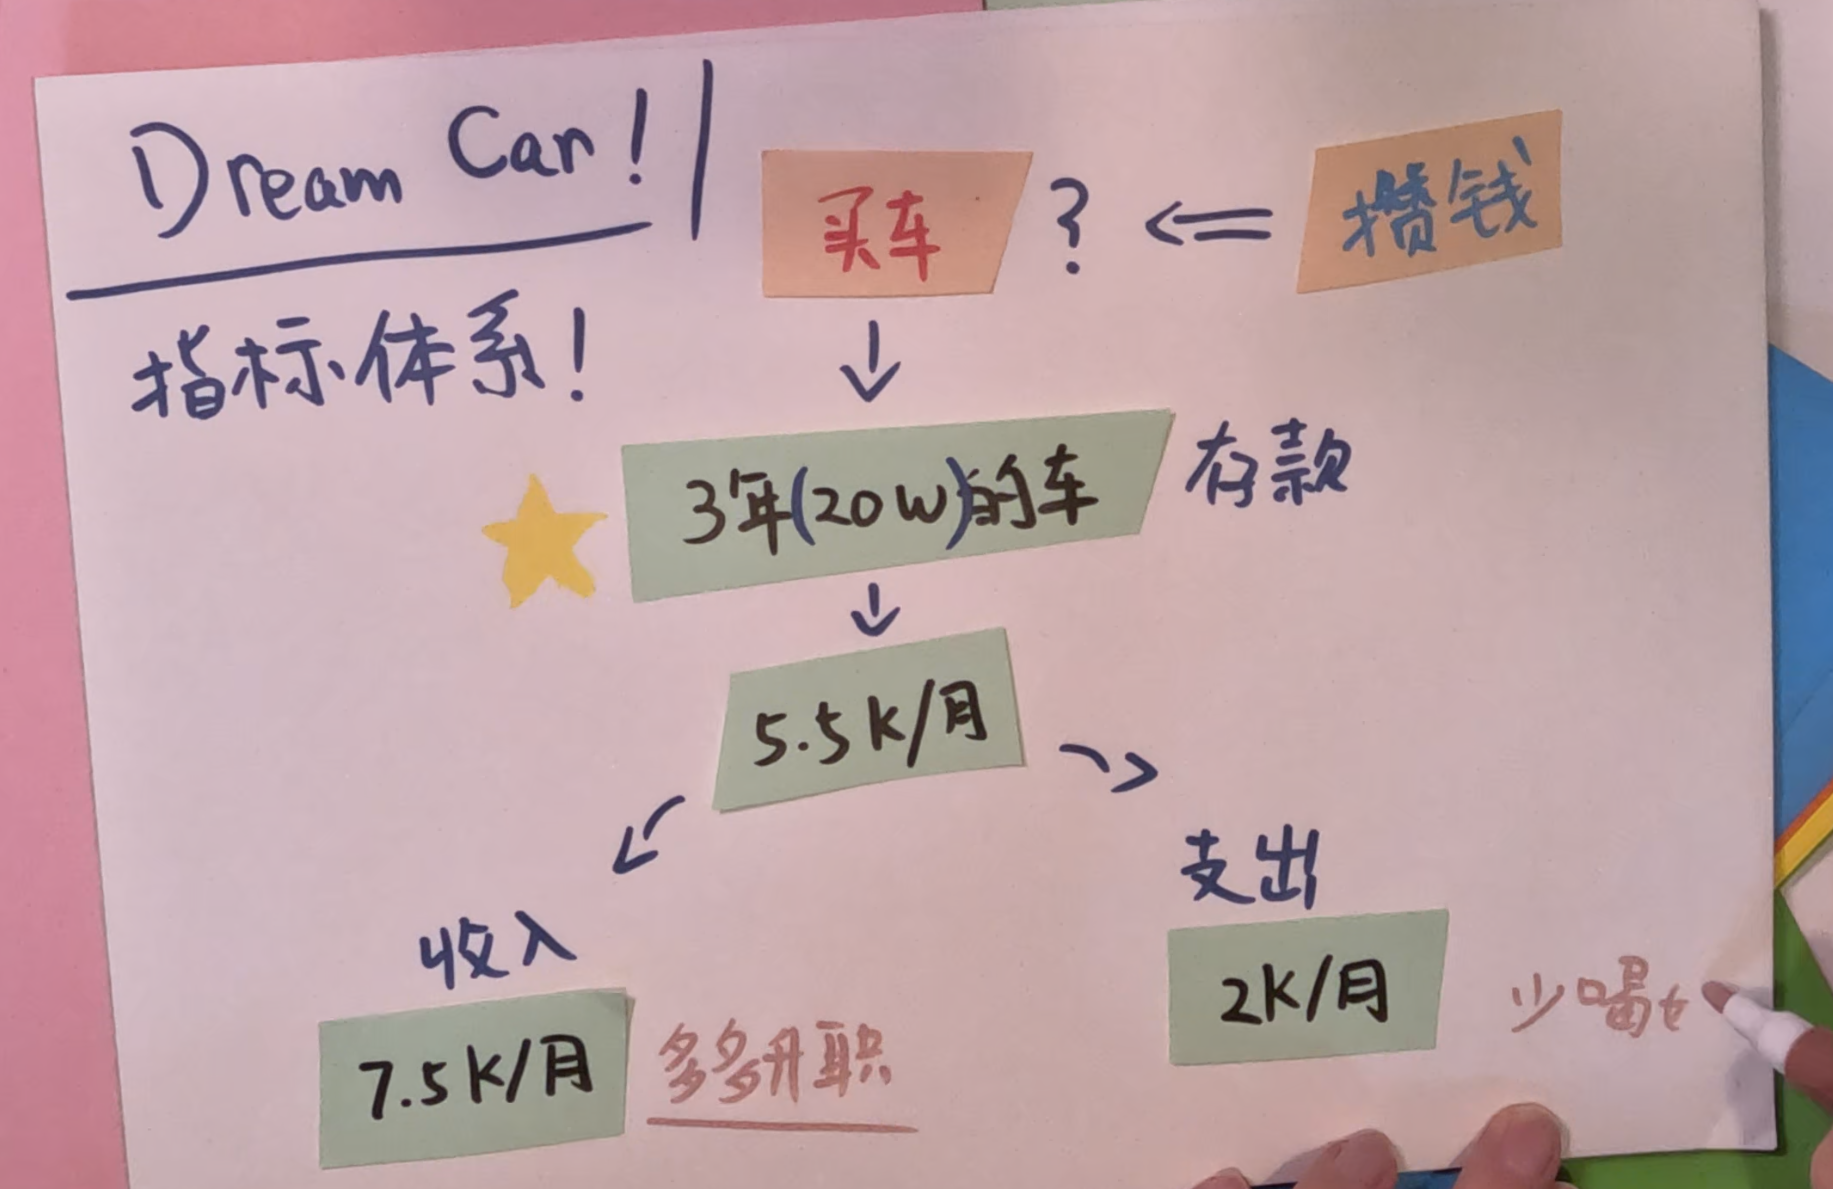 Dream Car!
指标体系!
买车 ? ⇐ 攒钱
↓
3年(20W)的车 存款
↓
5.5K/月
收入
7.5K/月 多多升职
支出
2K/月 少喝